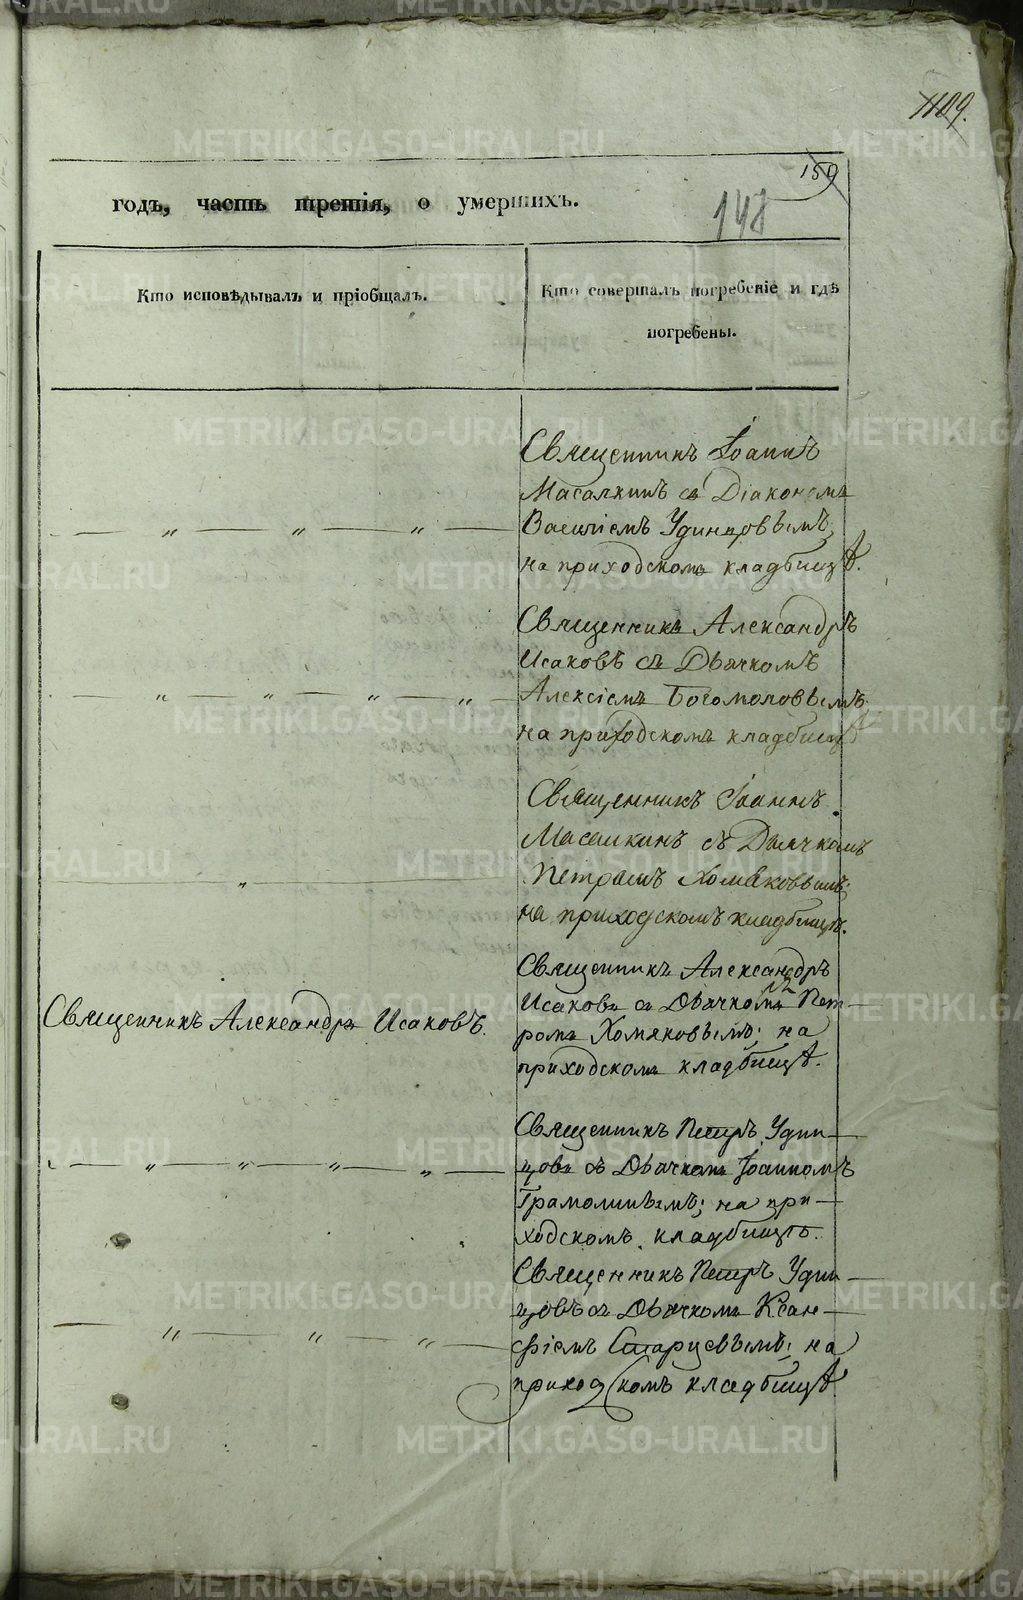 1109.
159
годъ, часть третія, о умершихъ.
148
Кто исповѣдывалъ и пріобщалъ.
Кто совершалъ погребеніе и гдѣ
погребены.
Священникъ Іоаннъ
Масалкинъ съ Діакономъ
— „ — „ — „ — Василіемъ Удинцовымъ;
на приходскомъ кладбищѣ.
Священникъ Александръ
Исаковъ съ Дьячкомъ
— „ — „ — „ — „ — Алексіемъ Богомоловымъ;
на приходскомъ кладбищѣ
Священникъ Іоаннъ
Масалкинъ съ Дьячкомъ
— „ — Петромъ Хомяковымъ;
на приходскомъ кладбищѣ.
Священникъ Александръ
Священникъ Александръ Исаковъ.
Исаковъ съ Дьячкомъ Пет-
ромъ Хомяковымъ; на
приходскомъ кладбищѣ.
Священникъ Петръ Удин-
— „ — „ — „ — „ — цовъ съ Дьячкомъ Іоанномъ
Грамолинымъ; на при-
ходскомъ кладбищѣ.
Священникъ Петръ Удин-
цовъ съ Дьячкомъ Ксан-
— „ — „ — „ — фіемъ Старцевымъ; на
приходскомъ кладбищѣ.
METRIKI.GASO-URAL.RU